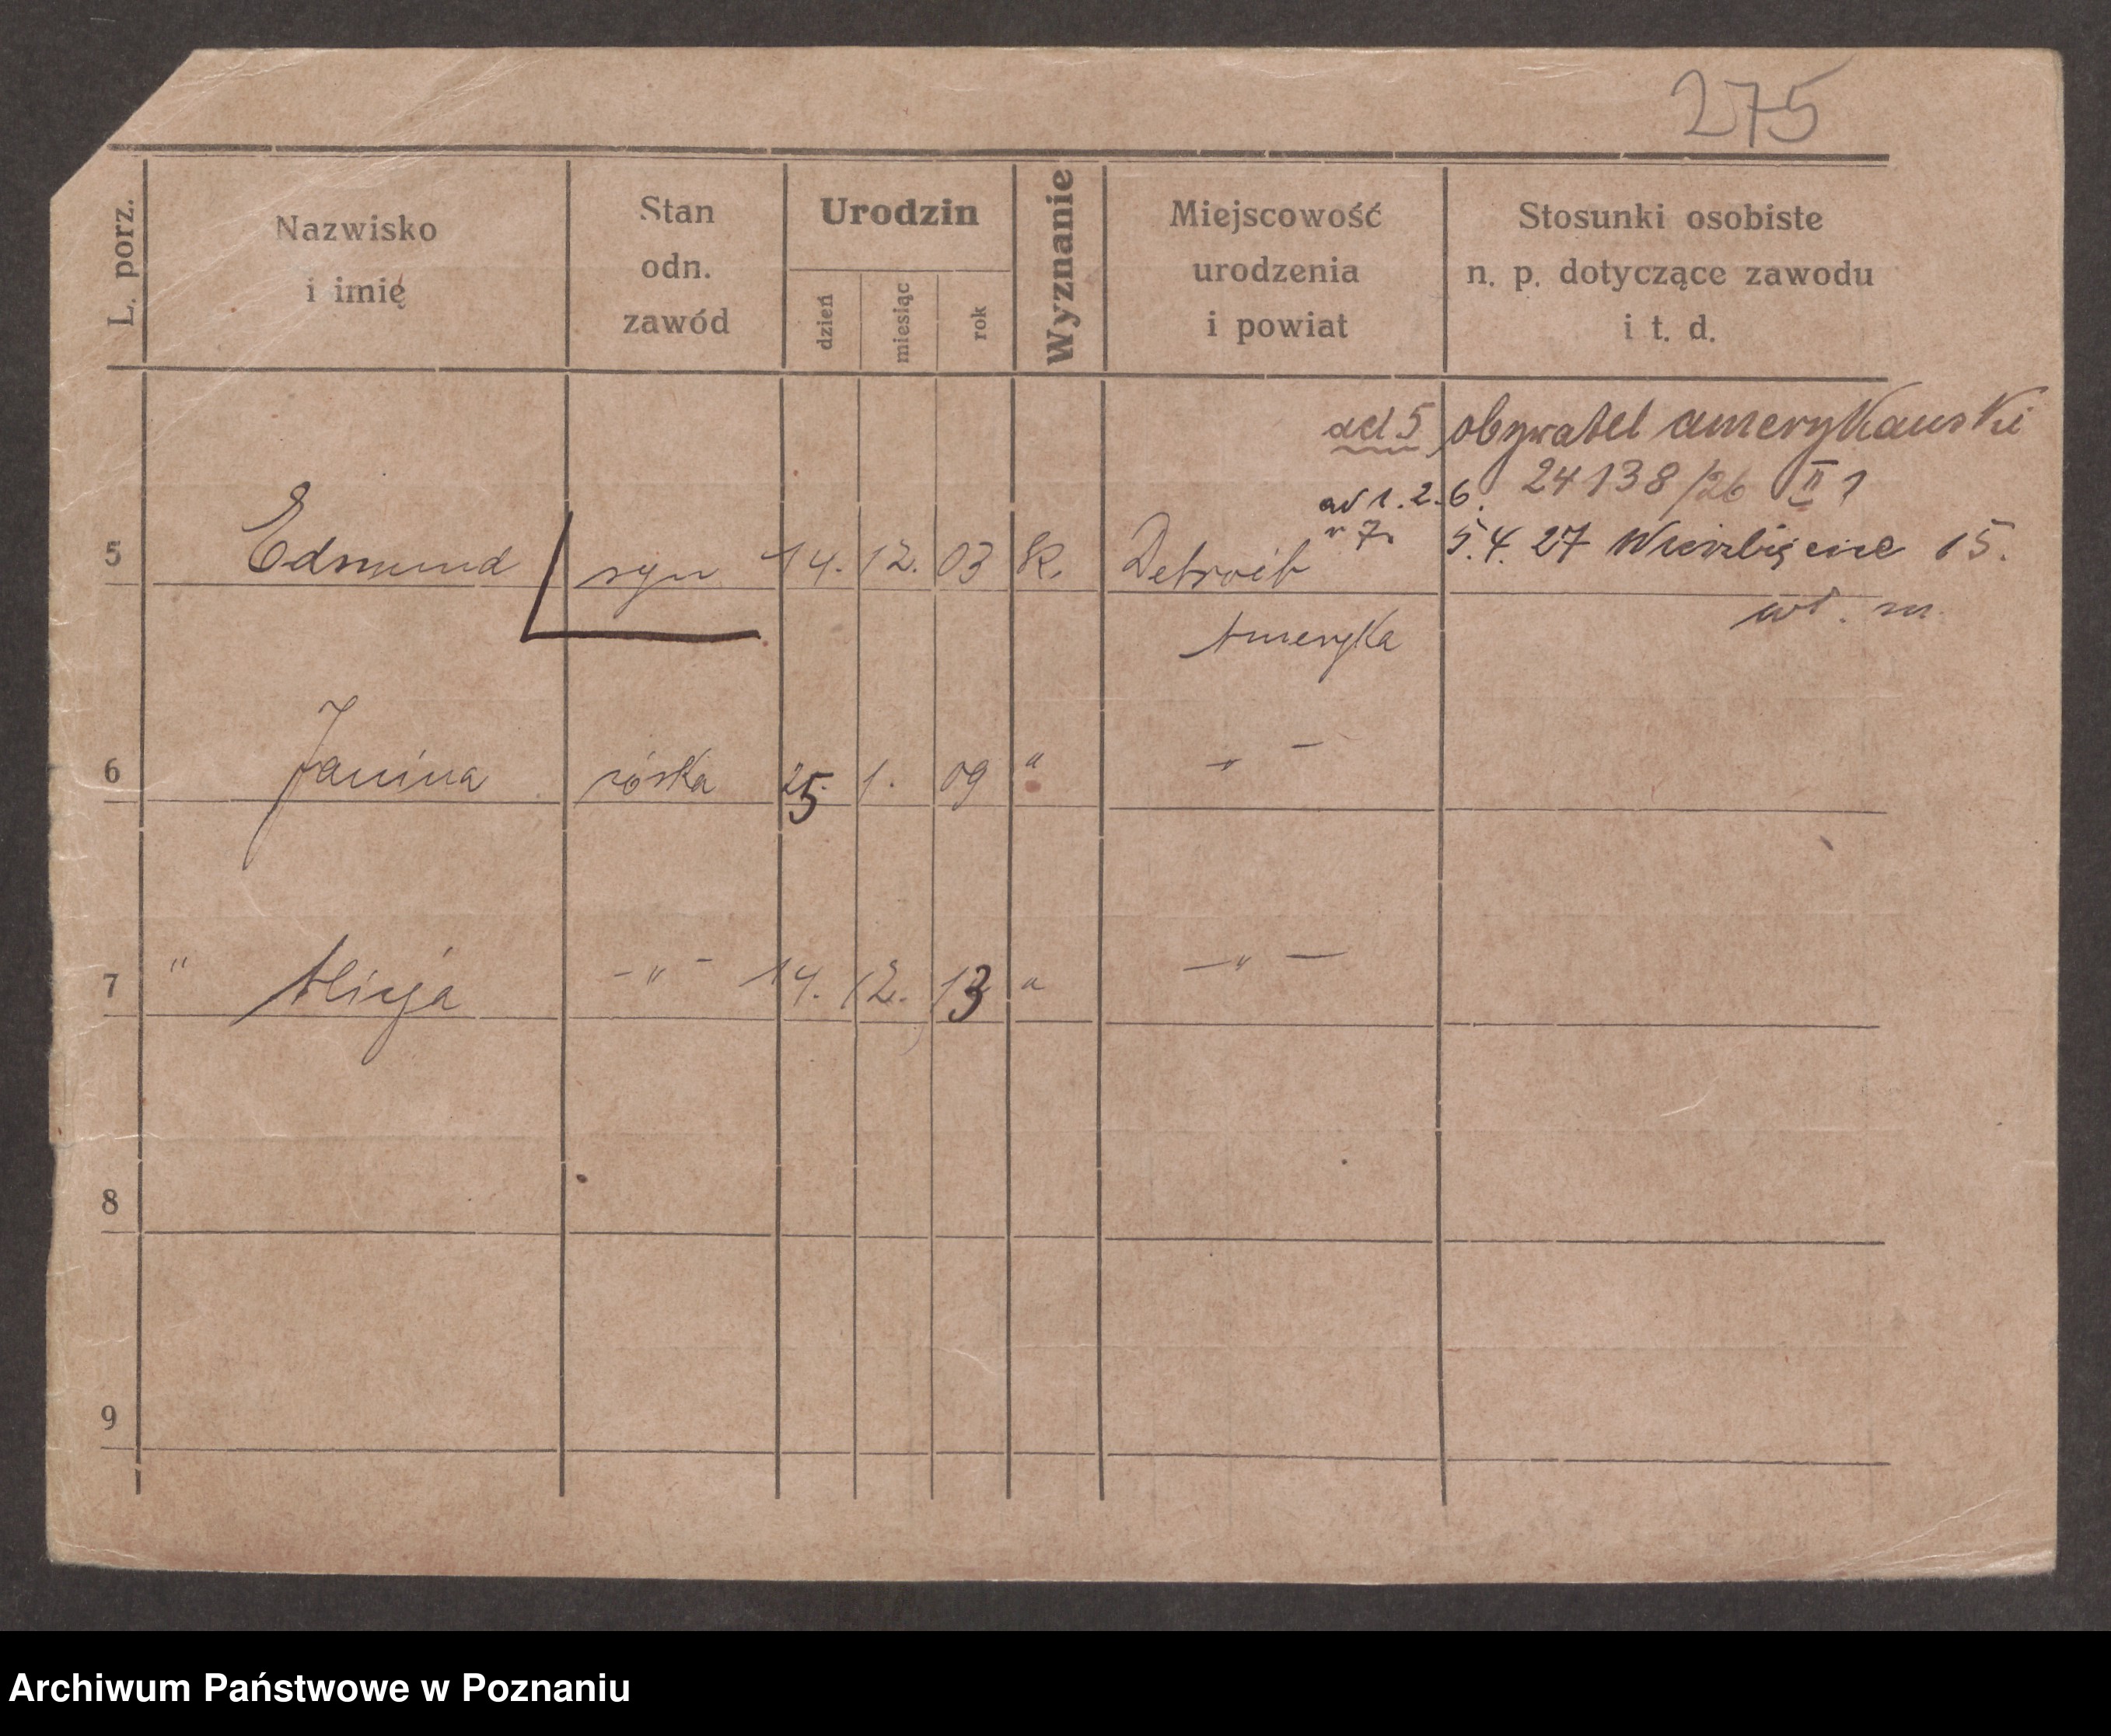 275
L. porz.
Nazwisko
i imię
Stan
odn.
zawód
Urodzin
dzień
miesiąc
rok
Wyznanie
Miejscowość
urodzenia
i powiat
Stosunki osobiste
n. p. dotyczące zawodu
i t. d.
ad 5 obywatel amerykanski
24138/26 II 1
ad 1. 2. 6.
" 7. 5.4.27 Wierzbięcice 15.
5 Edmund syn 14. 12. 03 K. Detroit
wł. m.
Ameryka
6 Janina córka 25. 1. 09 " - " -
7 " Alicja - " - 14. 12. 13 " - " -
8
9
Archiwum Państwowe w Poznaniu